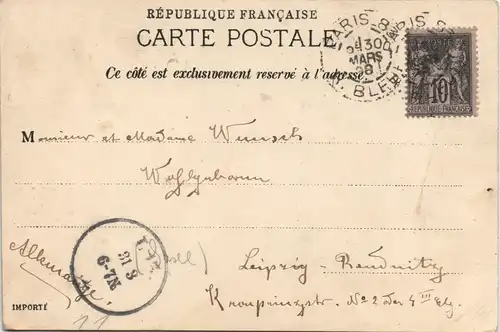 RÉPUBLIQUE FRANÇAISE
CARTE POSTALE
Ce côté est exclusivement reservé à l'adresse
PARIS
30
MARS
98
R. BLEUE
10
REPUBLIQUE FRANÇAISE
Monsieur et Madame Wunsch
Wohlgeboren
31 3
6-7N
Allemagne
Leipzig-Reudnitz
Kronprinzstr. No 2 der 4 III Etg.
IMPORTÉ